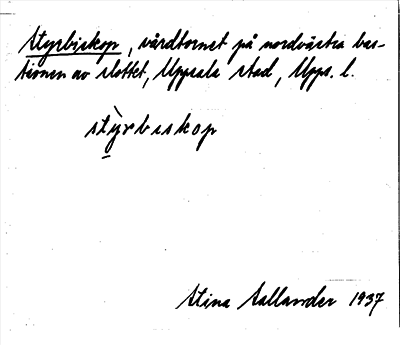 Styrbiskop, vårdtornet på nordvästra bas-
tionen av slottet, Uppsala stad, Upps. l.
stỳrbıskop
Stina Sallander 1937